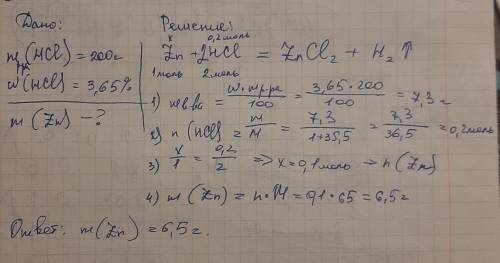 Дано:
m р-ра (HCl) = 200г
w(HCl) = 3,65%
m (Zn) - ?
Решение:
x 0,2 моль
Zn + 2HCl = ZnCl₂ + H₂ ↑
1 моль 2 моль
1) m в-ва = w · m р-ра / 100 = 3,65 · 200 / 100 = 7,3 г
2) n (HCl) = m / M = 7,3 / 1+35,5 = 7,3 / 36,5 = 0,2 моль
3) x / 1 = 0,2 / 2 => x = 0,1 моль - n (Zn)
4) m (Zn) = n · M = 0,1 · 65 = 6,5 г
Ответ: m (Zn) = 6,5 г.